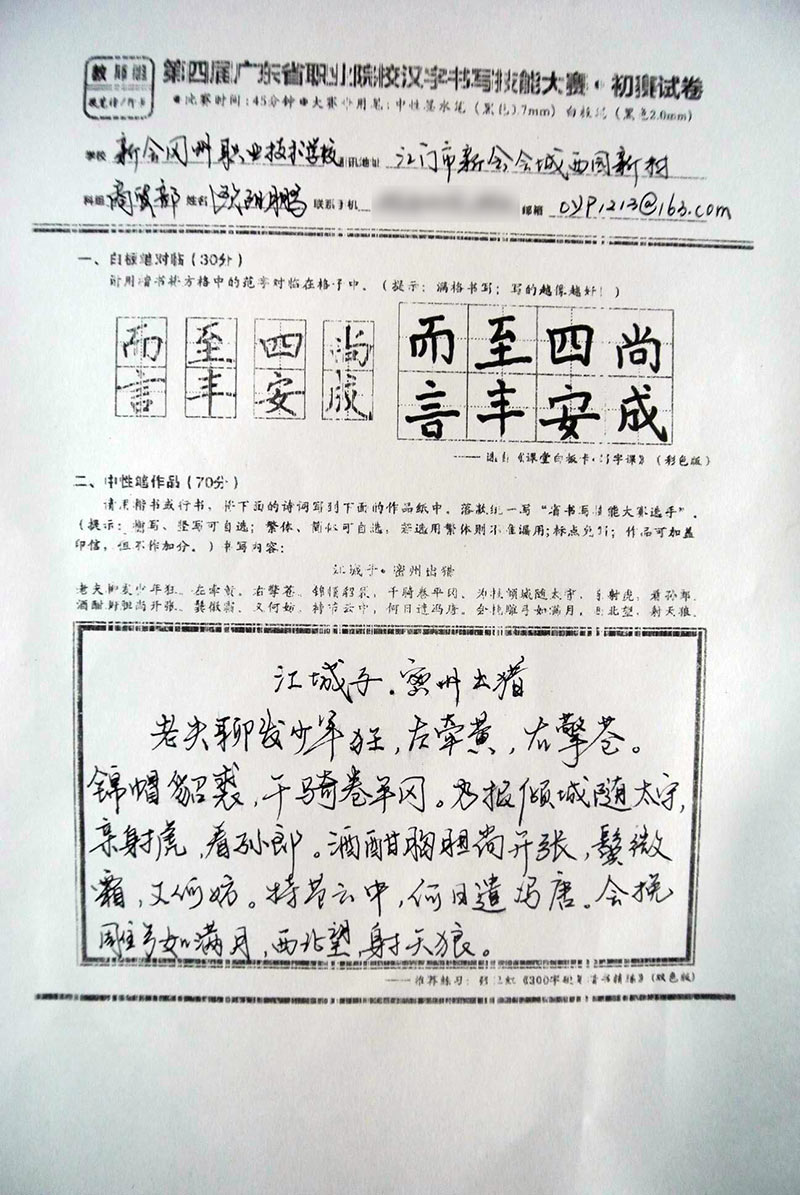 教师组
第四届广东省职业院校汉字书写技能大赛·初赛试卷
●比赛时间:45分钟●大赛专用笔:中性墨水笔(黑色0.7mm)白板笔(黑色2.0mm)
学校 新会冈州职业技术学校 通讯地址 江门市新会会城西园新村
科组 商贸部 姓名 欧阳鹏 联系手机 邮箱 oyp1213@163.com
一、白板笔对临(30分)
请用楷书将方格中的范字对临在格子中。(提示:满格书写;写的越像越好!)
而 至 四 尚 而 至 四 尚
言 丰 安 成 言 丰 安 成
——选自《课堂白板卡·写字课》(彩色版)
二、中性笔作品(70分)
请用楷书或行书,将下面的诗词写到下面的作品纸中。落款统一写“省书写技能大赛选手”。
(提示:横写、竖写可自选;繁体、简体可自选,若选用繁体则不准漏用;标点免写;作品可加盖
印信,但不作加分。)书写内容:
江城子·密州出猎
老夫聊发少年狂,左牵黄,右擎苍。锦帽貂裘,千骑卷平冈。为报倾城随太守,亲射虎,看孙郎。
酒酣胸胆尚开张,鬓微霜,又何妨。持节云中,何日遣冯唐。会挽雕弓如满月,西北望,射天狼。
江城子·密州出猎
老夫聊发少年狂,左牵黄,右擎苍。
锦帽貂裘,千骑卷平冈。为报倾城随太守,
亲射虎,看孙郎。酒酣胸胆尚开张,鬓微
霜,又何妨。持节云中,何日遣冯唐。会挽
雕弓如满月,西北望,射天狼。
——推荐练习:《300字》(双色版)